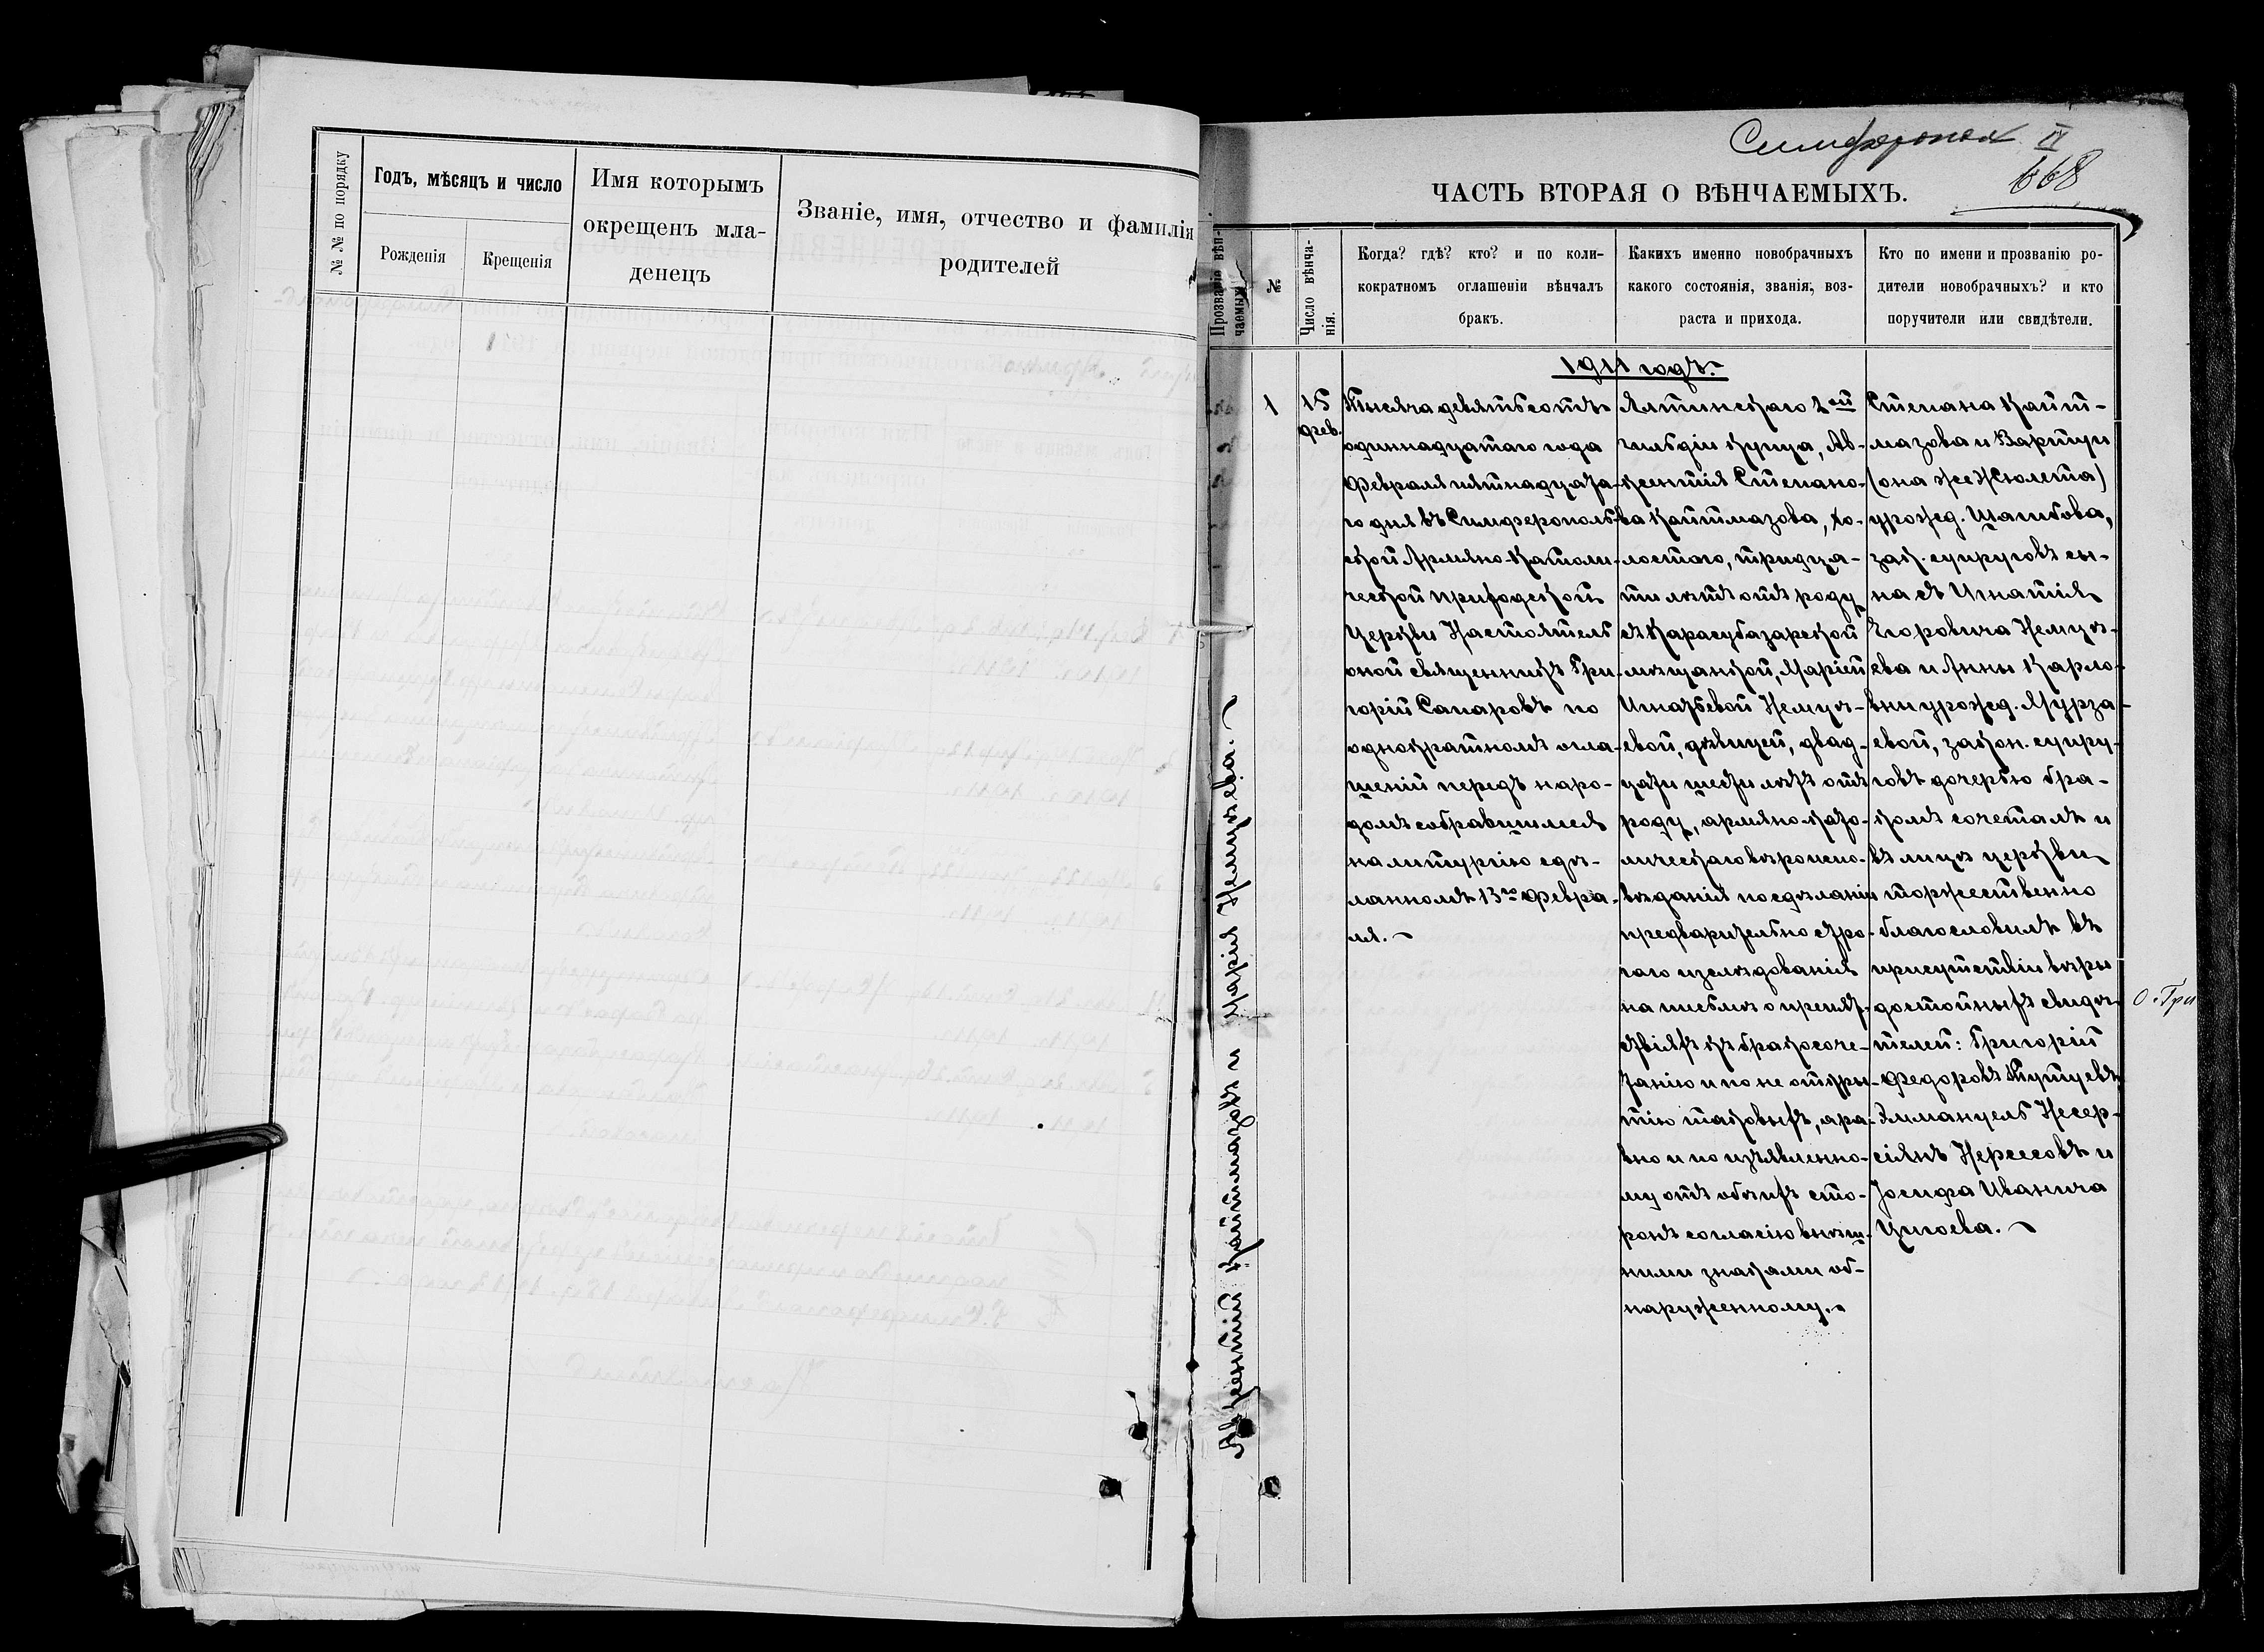 № № по порядку
Годъ, мѣсяцъ и число
Рожденія
Крещенія
Имя которымъ
окрещенъ мла-
денецъ
Званіе, имя, отчество и фамилія
родителей
Симферополь IV
668
ЧАСТЬ ВТОРАЯ О ВѢНЧАЕМЫХЪ.
Прозваніе вѣн-
чаемыхъ
№
Число вѣнча-
нія.
Когда? гдѣ? кто? и по коли-
кократномъ оглашеніи вѣнчалъ
бракъ.
Какихъ именно новобрачныхъ
какого состоянія, званія, воз-
раста и прихода.
Кто по имени и прозванію ро-
дители новобрачныхъ? и кто
поручители или свидѣтели.
1911 годъ.
Авксентій Кайтмазовъ и Марія Немцуева.
1
15
фев.
Тысяча девятьсотъ
одиннадцатаго года
Февраля пятнадцата-
го дня въ Симферополь-
ской Армяно-Католи-
ческой приходской
Церкви Настоятель
оной священникъ Гри-
горій Сапаровъ по
однократномъ огла-
шеніи передъ наро-
домъ собравшимся
на литургію сдѣ-
ланномъ 13го Февра-
ля.
Ялтинскаго 2ой
гильдіи купца, Ав-
ксентія Степано-
ва Кайтмазова, хо-
лостого, тридца-
ти лѣтъ отъ роду
съ Карасубазарской
мѣщанкой, Маріей
Игнатьевой Немцу-
евой, дѣвицей, двад-
цати шести лѣтъ отъ
роду, армяно-като-
лическаго вѣроиспо-
вѣданія по сдѣланіи
предварительно стро-
гаго изслѣдованія
на письмѣ о препят-
ствіяхъ къ бракосоче-
танію и по не откры-
тію таковыхъ, а ра-
вно и по изъявленно-
му отъ обѣихъ сто-
ронъ согласію внѣш-
ними знаками об-
наруженному.
Степана Кайт-
мазова и Вартуи
(она же Жюлета)
урожд. Шаибова,
зак. супруговъ сы-
на съ Игнатія
Егоровича Немцу-
ева и Анны Карло-
вны урожд. Мурза-
евой, закон. супру-
говъ дочерью бра-
комъ сочеталъ и
въ лицѣ церкви
торжественно
благословилъ въ
присутствіи вѣры
достойныхъ свидѣ-
телей: Григорій
Федоровъ Тутуевъ
Эммануелъ Несер-
сіянъ Нерсесовъ и
Іосифа Иванича
Циоева.
О. Гри